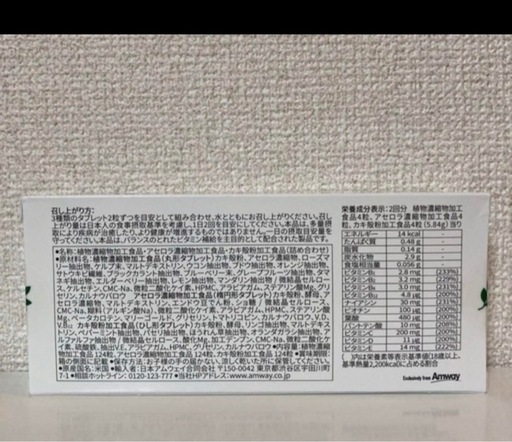 召し上がり方:
3種類のタブレット2粒ずつを目安として組み合わせ、水とともにお召し上がりください。召
し上がり量は日本人の食事摂取基準を考慮し1日2回を目安にしてください。本品は、多量摂
取により疾病が治癒したり、より健康が増進するものではありません。一日の摂取目安量を
守ってください。本品は、バランスのとれたビタミン補給を主目的として配合された製品です。
●名称:植物濃縮物加工食品・アセロラ濃縮物加工食品・カキ殻粉加工食品(詰め合わせ)
●原材料名:植物濃縮物加工食品(丸形タブレット)カキ殻粉、アセロラ濃縮物、ローズマ
リー抽出物
サトウキビ繊維、ブラックカラント抽出物、ブルーベリー末、グレープフルーツ抽出物、
ンニク末、オレンジ抽出物、セロリ末、レモン抽出物、マンダリン抽出物/微結晶セルロー
ス、ケルセチン、CMC-Na、微粒二酸化ケイ素、HPMC、ステアリン酸Mg、グリ
セリン、カルナウバロウ アセロラ濃縮物加工食品(楕円形タブレット)カキ殻粉、酵母、ア
セロラ濃縮物、マルトデキストリン、エンドウ豆でん粉、ショ糖/微結晶セルロース、V.C、
CMC-Na、糊料(アルギン酸Na)、微粒二酸化ケイ素、アラビアガム、HPMC、ステアリン酸
Mg、ベータカロテン、マリーゴールド、グリセリン、トマトリコピン、カルナウバロウ、V.D、
V.B₁₂ カキ殻粉加工食品(ひし形タブレット)カキ殻粉、酵母、リンゴ抽出物、マルトデキス
トリン、ペパーミント抽出物、パセリ抽出物、ほうれん草抽出物、オランダガラシ抽出物、ア
ルファルファ抽出物/微結晶セルロース、酸化Mg、加工デンプン、CMC-Na、微粒二酸化ケ
イ素、硫酸鉄、酢酸V.E、アラビアガム、HPMC、グリセリン、カルナウバロウ ●内容量:植物濃縮
物加工食品 124粒、アセロラ濃縮物加工食品 124粒、カキ殻粉加工食品 124粒 ●賞味期限:
箱の側面に記載 ●保存方法:お子様の手の届かない、直射日光のあたらない乾いた所に保管してください。
●原産国:米国 ●輸入者:日本アムウェイ合同会社 〒150-0042 東京都渋谷区宇田川町
7-1 ●相談ホットライン: 0120-123-777 ●当社HPアドレス:www.amway.co.jp
栄養成分表示:2回分 植物濃縮物加工
食品4粒、アセロラ濃縮物加工食品4
粒、カキ殻粉加工食品4粒 (5.84g) 当り
エネルギー 14 kcal
たんぱく質 0.48 g
脂質 0.14 g
炭水化物 2.9 g
食塩相当量 0.056 g
ビタミンB₁ 2.8 mg (233%)
ビタミンB₂ 3.2 mg (229%)
ビタミンB₆ 3.0 mg (231%)
ビタミンB₁₂ 4.8 μg (200%)
ナイアシン 30 mg
ビオチン 100 μg (200%)
葉酸 480 μg (200%)
パントテン酸 10 mg
ビタミンC 200 mg (200%)
ビタミンD 11 μg (200%)
ビタミンE 14 mg
( )内は栄養素等表示基準値(18歳以上、
基準熱量2,200kcal)に占める割合
Exclusively from Amway